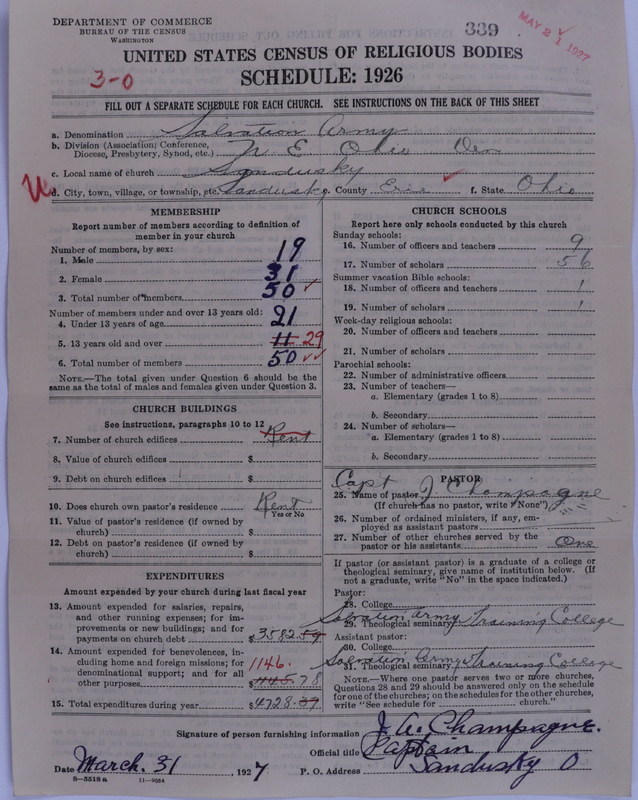 DEPARTMENT OF COMMERCE
BUREAU OF THE CENSUS
WASHINGTON
339
MAY 21 1927
UNITED STATES CENSUS OF RELIGIOUS BODIES
3-0
SCHEDULE: 1926
FILL OUT A SEPARATE SCHEDULE FOR EACH CHURCH. SEE INSTRUCTIONS ON THE BACK OF THIS SHEET
a. Denomination Salvation Army
b. Division (Association, Conference, Diocese, Presbytery, Synod, etc.) N E Ohio Div
c. Local name of church Sandusky
d. City, town, village, or township, etc. Sandusky e. County Erie f. State Ohio
MEMBERSHIP
Report number of members according to definition of member in your church
Number of members, by sex:
1. Male 19
2. Female 31
3. Total number of members 50
Number of members under and over 13 years old:
4. Under 13 years of age 21
5. 13 years old and over 11 29
6. Total number of members 50
NOTE.—The total given under Question 6 should be the same as the total of males and females given under Question 3.
CHURCH BUILDINGS
See instructions, paragraphs 10 to 12
7. Number of church edifices Rent
8. Value of church edifices $
9. Debt on church edifices $
10. Does church own pastor's residence Rent
Yes or No
11. Value of pastor's residence (if owned by church) $
12. Debt on pastor's residence (if owned by church) $
EXPENDITURES
Amount expended by your church during last fiscal year
13. Amount expended for salaries, repairs, and other running expenses; for improvements or new buildings; and for payments on church debt $3582.59
14. Amount expended for benevolences, including home and foreign missions; for denominational support; and for all other purposes 1146. $1145.78
15. Total expenditures during year $4728.37
CHURCH SCHOOLS
Report here only schools conducted by this church
Sunday schools:
16. Number of officers and teachers 9
17. Number of scholars 56
Summer vacation Bible schools:
18. Number of officers and teachers 1
19. Number of scholars 1
Week-day religious schools:
20. Number of officers and teachers
21. Number of scholars
Parochial schools:
22. Number of administrative officers
23. Number of teachers—
a. Elementary (grades 1 to 8)
b. Secondary
24. Number of scholars—
a. Elementary (grades 1 to 8)
b. Secondary
PASTOR
25. Name of pastor Capt J Champagne
(If church has no pastor, write "None")
26. Number of ordained ministers, if any, employed as assistant pastors
27. Number of other churches served by the pastor or his assistants One
If pastor (or assistant pastor) is a graduate of a college or theological seminary, give name of institution below. (If not a graduate, write "No" in the space indicated.)
Pastor:
28. College
29. Theological seminary Salvation Army Training College
Assistant pastor:
30. College
31. Theological seminary Salvation Army Training College
NOTE.—Where one pastor serves two or more churches, Questions 28 and 29 should be answered only on the schedule for one of the churches; on the schedules for the other churches, write "See schedule for church."
Signature of person furnishing information J. A. Champagne.
Official title Captain
Date March. 31, 1927 P. O. Address Sandusky O
8—5518 a 11—9064